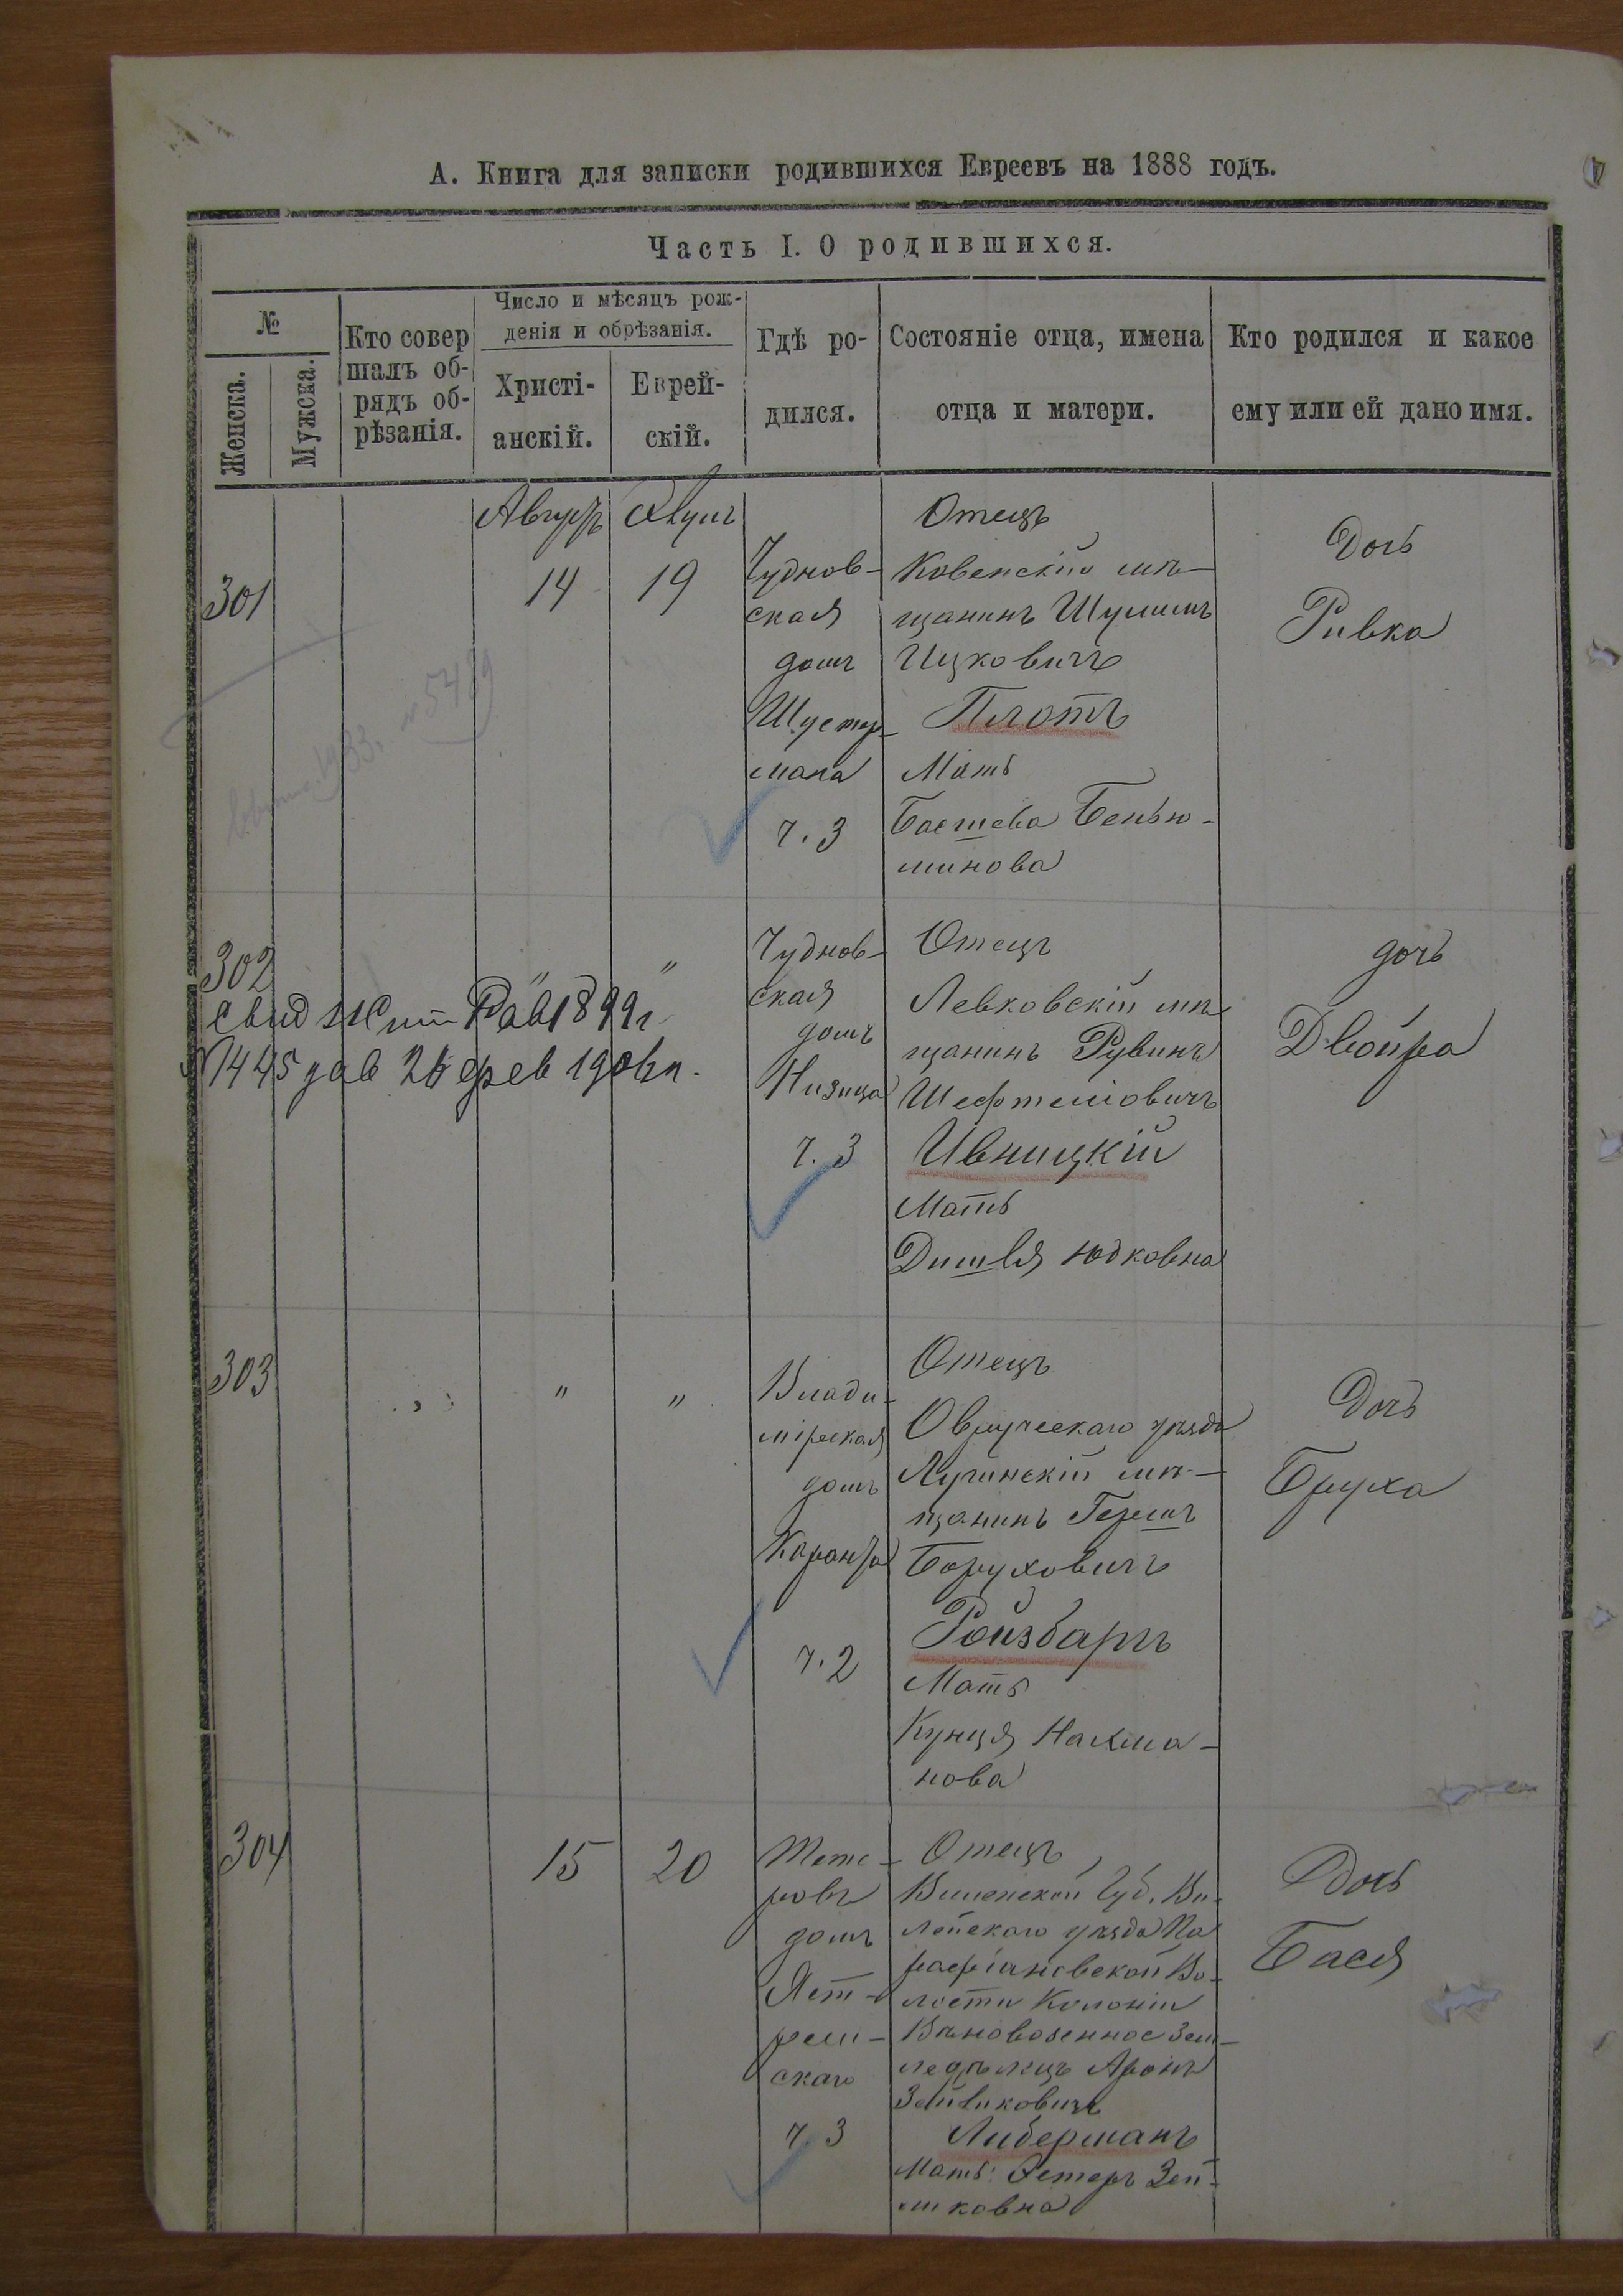 А. Книга для записки родившихся Евреевъ на 1888 годъ.
Часть I. О родившихся.
№
Женска.
Мужска.
Кто совер
шалъ об-
рядъ об-
рѣзанія.
Число и мѣсяцъ рож-
денія и обрѣзанія.
Христі-
анскій.
Еврей-
скій.
Гдѣ ро-
дился.
Состояніе отца, имена
отца и матери.
Кто родился и какое
ему или ей дано имя.
301
Августъ
14
19
Чуднов-
ская
домъ
Шустер-
мана
ч. 3
Отецъ
Ковенскій мѣ-
щанинъ Шулимъ
Ицковичъ
Плотъ
Мать
Басшева Бенью-
минова
Дочь
Ривка
302
"
"
Чуднов-
ская
домъ
Низица
ч. 3
Отецъ
Левковскій мѣ
щанинъ Рувинъ
Шефтеліовичъ
Ивницкій
Мать
Юдковна
дочь
Двойра
303
"
"
Влади-
мірская
домъ
ч. 2
Отецъ
Овручскаго уѣзда
Лугинскій мѣ-
щанинъ Гершъ
Боруховичъ
Ройзбаръ
Мать
Кунця Нахма-
нова
Дочь
Бруха
304
15
20
Тете-
ровъ
домъ
Яст-
рем-
скаго
ч. 3
Отецъ
Виленской Губ. Ви-
лейскаго уѣзда Па
рафіановской Во-
лости Колоніи
Зем-
ледѣлецъ Аронъ
Либерманъ
Мать: Эстеръ Зел-
ковна
Дочь
Бася